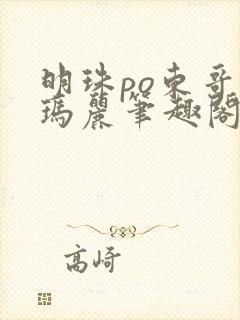 明珠po东哥
瑪麗筆趣閣
高崎